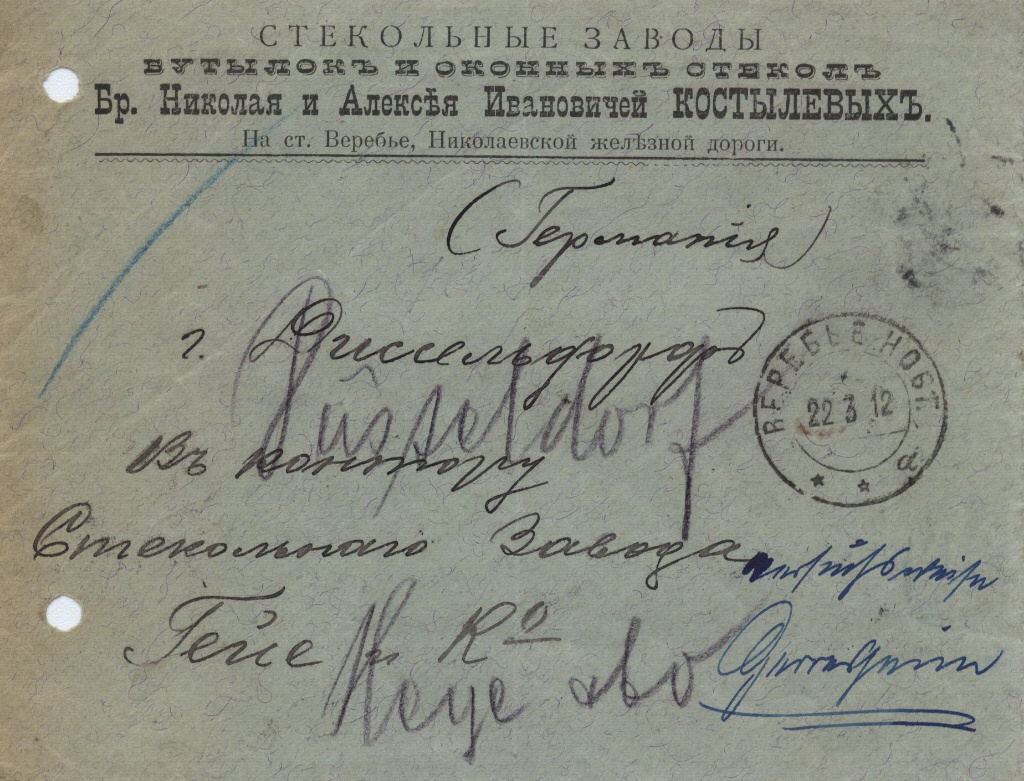 СТЕКОЛЬНЫЕ ЗАВОДЫ
БУТЫЛОКЪ И ОКОННЫХЪ СТЕКОЛЪ
Бр. Николая и Алексѣя Ивановичей КОСТЫЛЕВЫХЪ.
На ст. Веребье, Николаевской желѣзной дороги.
(Германія)
г. Диссельдорфъ
Düsseldorf
ВЕРЕБЬЕ НОВГ.
22 3 12
а
Въ контору
Стекольнаго Завода
versuchsweise
Гейе и Ко
Heye
Gerresheim